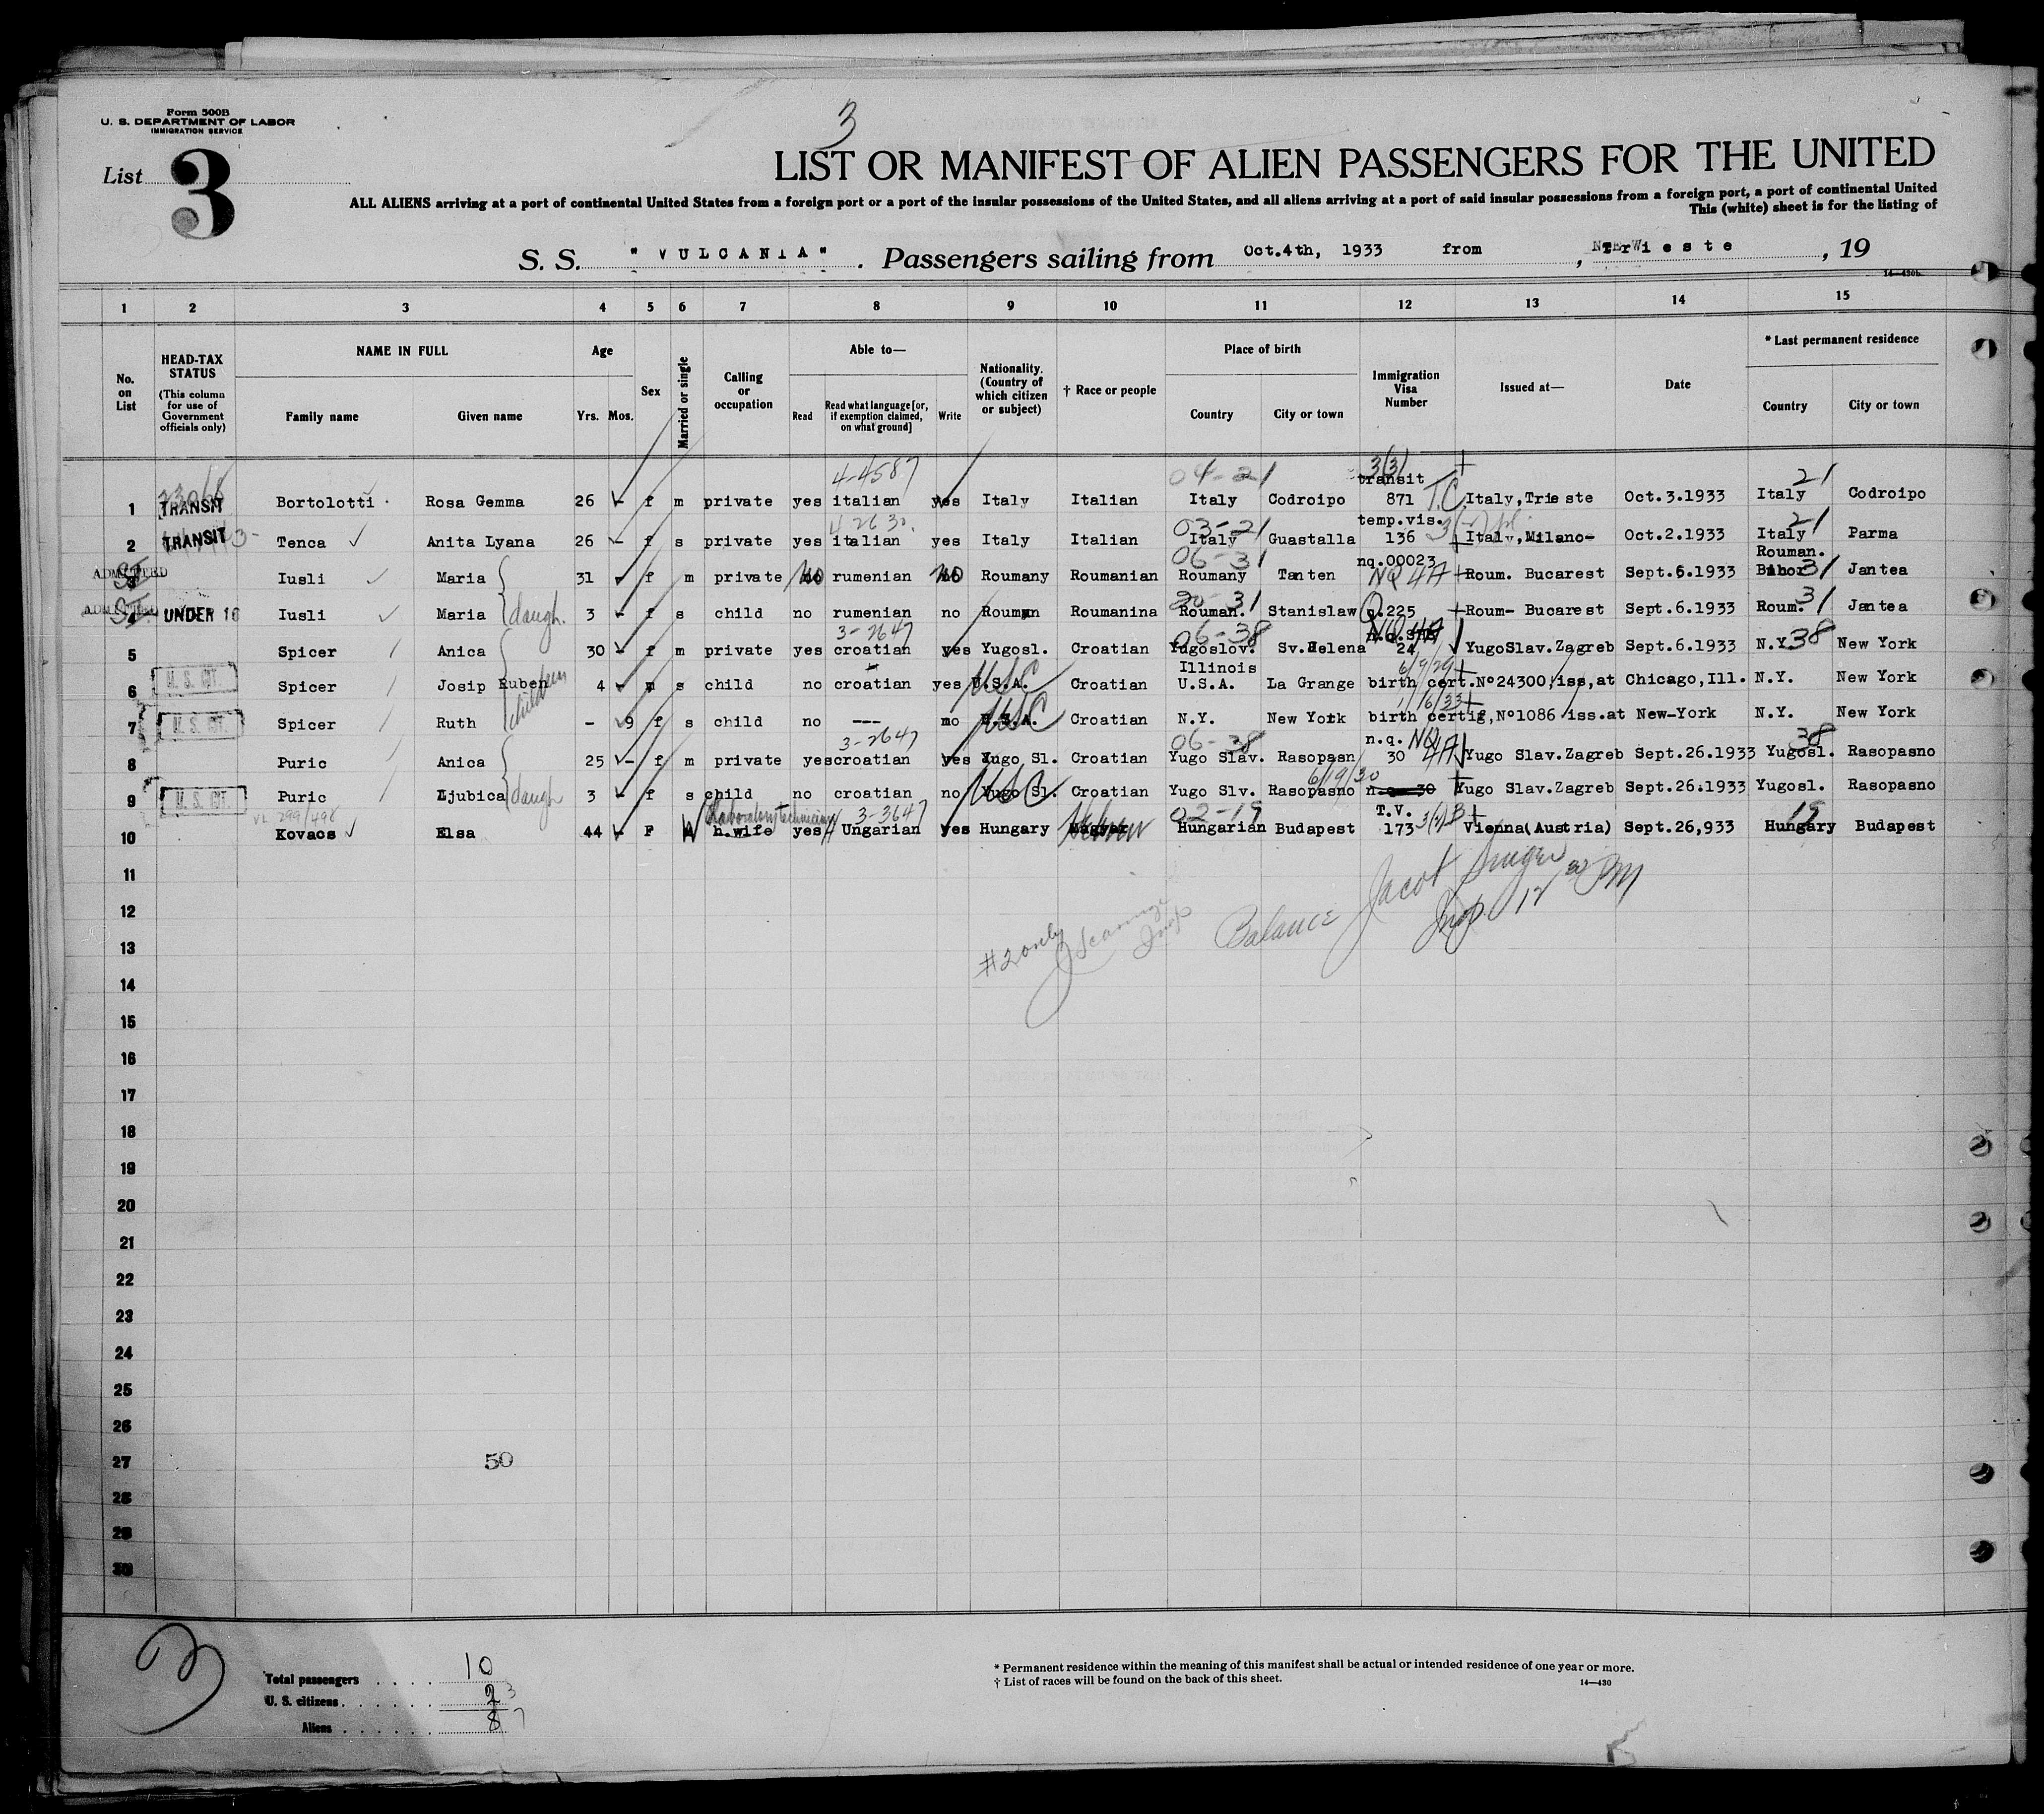 Form 500B
U. S. DEPARTMENT OF LABOR
IMMIGRATION SERVICE
3
List 3
LIST OR MANIFEST OF ALIEN PASSENGERS FOR THE UNITED
ALL ALIENS arriving at a port of continental United States from a foreign port or a port of the insular possessions of the United States, and all aliens arriving at a port of said insular possessions from a foreign port, a port of continental United
This (white) sheet is for the listing of
S. S. "VULCANIA". Passengers sailing from Oct.4th, 1933 from , Trieste , 19
14—430b
1 2 3 4 5 6 7 8 9 10 11 12 13 14 15
No. on List
HEAD-TAX STATUS (This column for use of Government officials only)
NAME IN FULL
Family name Given name
Age
Yrs. Mos.
Sex
Married or single
Calling or occupation
Able to—
Read Read what language [or, if exemption claimed, on what ground] Write
Nationality. (Country of which citizen or subject)
† Race or people
Place of birth
Country City or town
Immigration Visa Number
Issued at—
Date
* Last permanent residence
Country City or town
4-4587 04-21 3(3) transit 21
1 TRANSIT Bortolotti Rosa Gemma 26 - f m private yes italian yes Italy Italian Italy Codroipo 871 T.C. Italy,Trieste Oct.3.1933 Italy Codroipo
03-21 temp.vis. 21
2 TRANSIT Tenca Anita Lyana 26 - f s private yes italian yes Italy Italian Italy Guastalla 136 Italy,Milano- Oct.2.1933 Italy Parma
06-31 nq.00023 Rouman.
3 ADMITTED SI Iusli Maria 31 - f m private no rumenian no Roumany Roumanian Roumany Tanten NQ 4A Roum. Bucarest Sept.6.1933 Bihor 31 Jantea
20-31 31
4 ADMITTED SI UNDER 16 Iusli Maria daugh. 3 - f s child no rumenian no Rouman Roumanina Rouman. Stanislaw Q.225 Roum- Bucarest Sept.6.1933 Roum. Jantea
3-2647 06-38 NQ 4A 38
5 Spicer Anica 30 - f m private yes croatian yes Yugosl. Croatian Yugoslov. Sv.Helena 24 YugoSlav.Zagreb Sept.6.1933 N.Y. New York
Illinois 6/9/29
6 U. S. CIT. Spicer Josip Ruben children 4 - m s child no croatian yes U.S.A. USC Croatian U.S.A. La Grange birth cert.Nº24300,iss,at Chicago,Ill. N.Y. New York
1/6/33
7 U. S. CIT. Spicer Ruth - 9 f s child no --- no U.S.A. USC Croatian N.Y. New York birth certig,Nº1086 iss.at New-York N.Y. New York
3-2647 06-38 n.q. NQ 4A 38
8 Puric Anica 25 - f m private yes croatian yes Yugo Sl. Croatian Yugo Slav. Rasopasn 30 Yugo Slav.Zagreb Sept.26.1933 Yugosl. Rasopasno
6/19/30
9 U. S. CIT. Puric Ljubica daugh 3 - f s child no croatian no Yugo Sl. USC Croatian Yugo Slv. Rasopasno n.q. 30 Yugo Slav.Zagreb Sept.26.1933 Yugosl. Rasopasno
VL 299/498 Laboratory technician 3-3647 02-19 T.V. 19
10 Kovacs Elsa 44 - F W h.wife yes Ungarian yes Hungary Magyar Hebrew Hungarian Budapest 173 3(2)B Vienna(Austria) Sept.26,933 Hungary Budapest
11
12
13
14
15
16
17
18
19
20
21
22
23
24
25
26
27
28
29
30
#2 only Insp
Balance Jacob Singer
Insp. 12 30 PM
50
3
Total passengers 10
U. S. citizens 2 3
Aliens 8 7
* Permanent residence within the meaning of this manifest shall be actual or intended residence of one year or more.
† List of races will be found on the back of this sheet.
14—430